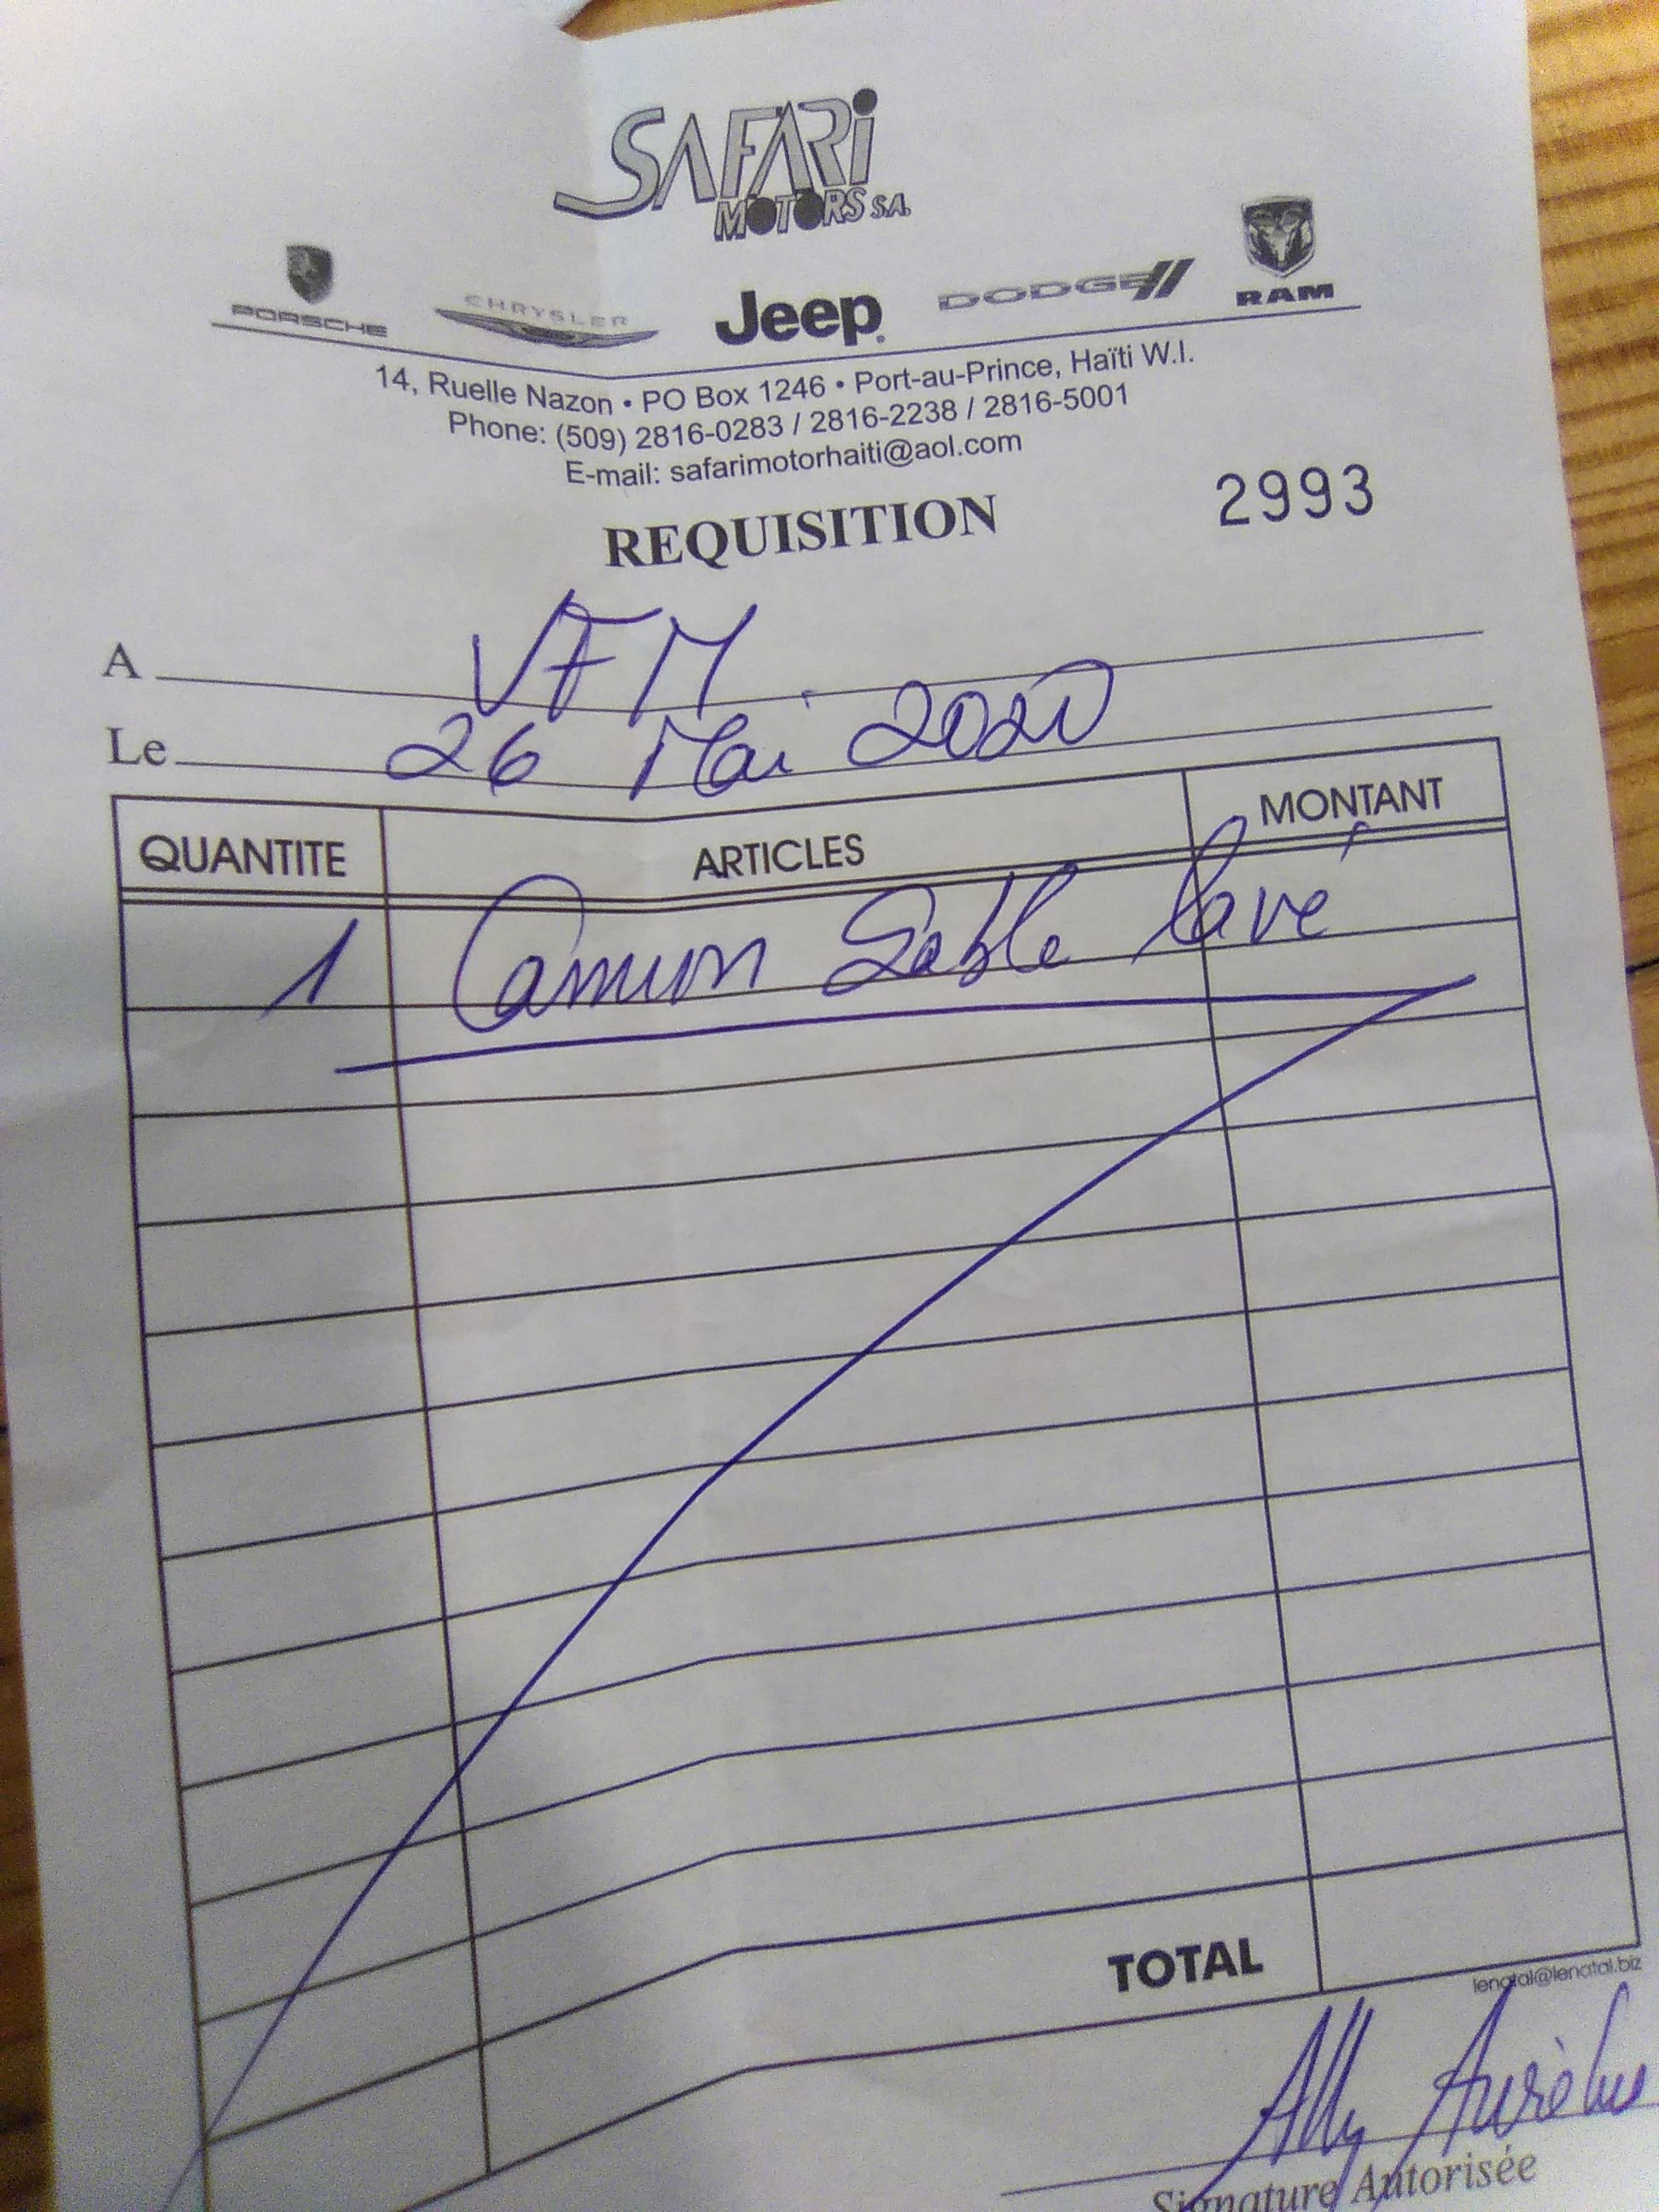 SAFARi
MOTORS S.A.
PORSCHE CHRYSLER Jeep DODGE RAM
14, Ruelle Nazon • PO Box 1246 • Port-au-Prince, Haïti W.I.
Phone: (509) 2816-0283 / 2816-2238 / 2816-5001
E-mail: safarimotorhaiti@aol.com
REQUISITION 2993
A VFM.
Le 26 Mai 2020
QUANTITE ARTICLES MONTANT
1 Camion Sable lavé
TOTAL
lenatal@lenatal.biz
Ally Aurélus
Signature Autorisée